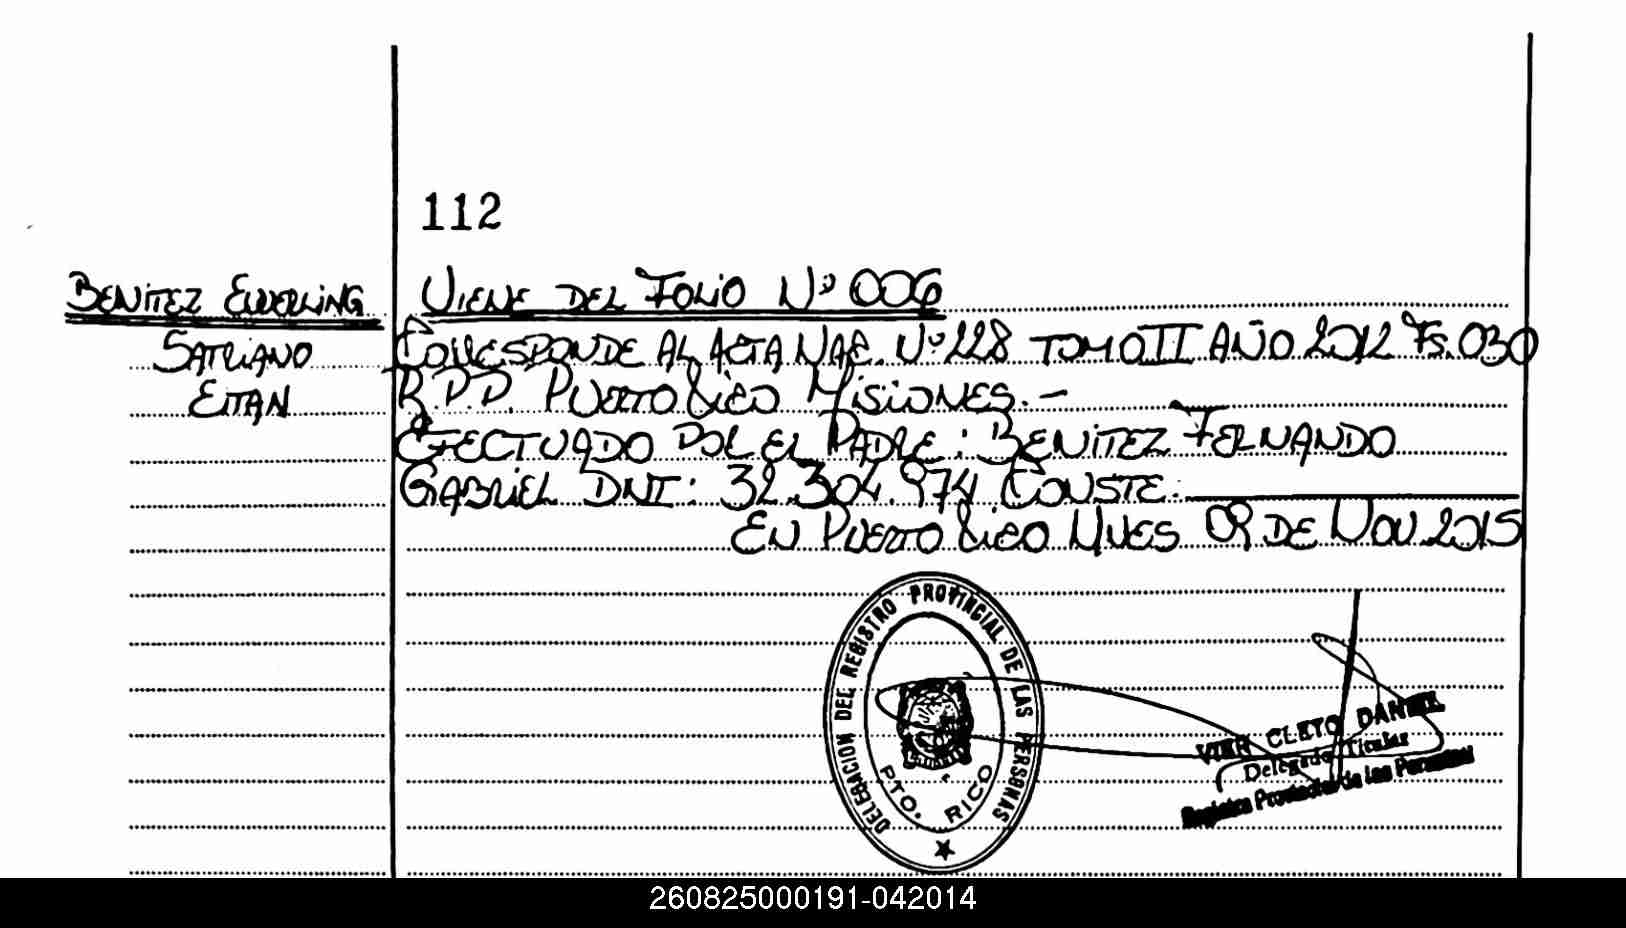 112
BENITEZ EWERLING
SATRIANO
EITAN
VIENE DEL FOLIO Nº 006
CORRESPONDE AL ACTA NAC. Nº 228 TOMO II AÑO 2012 FS. 030
R.P.P. PUERTO RICO MISIONES.-
EFECTUADO POR EL PADRE: BENITEZ FERNANDO
GABRIEL DNI: 32.304.974 CONSTE.
EN PUERTO RICO MNES 09 DE NOV. 2015
DELEGACION DEL REGISTRO PROVINCIAL DE LAS PERSONAS
PTO. RICO
VIER CLETO DANIEL
Delegado Titular
Registro Provincial de las Personas
260825000191-042014